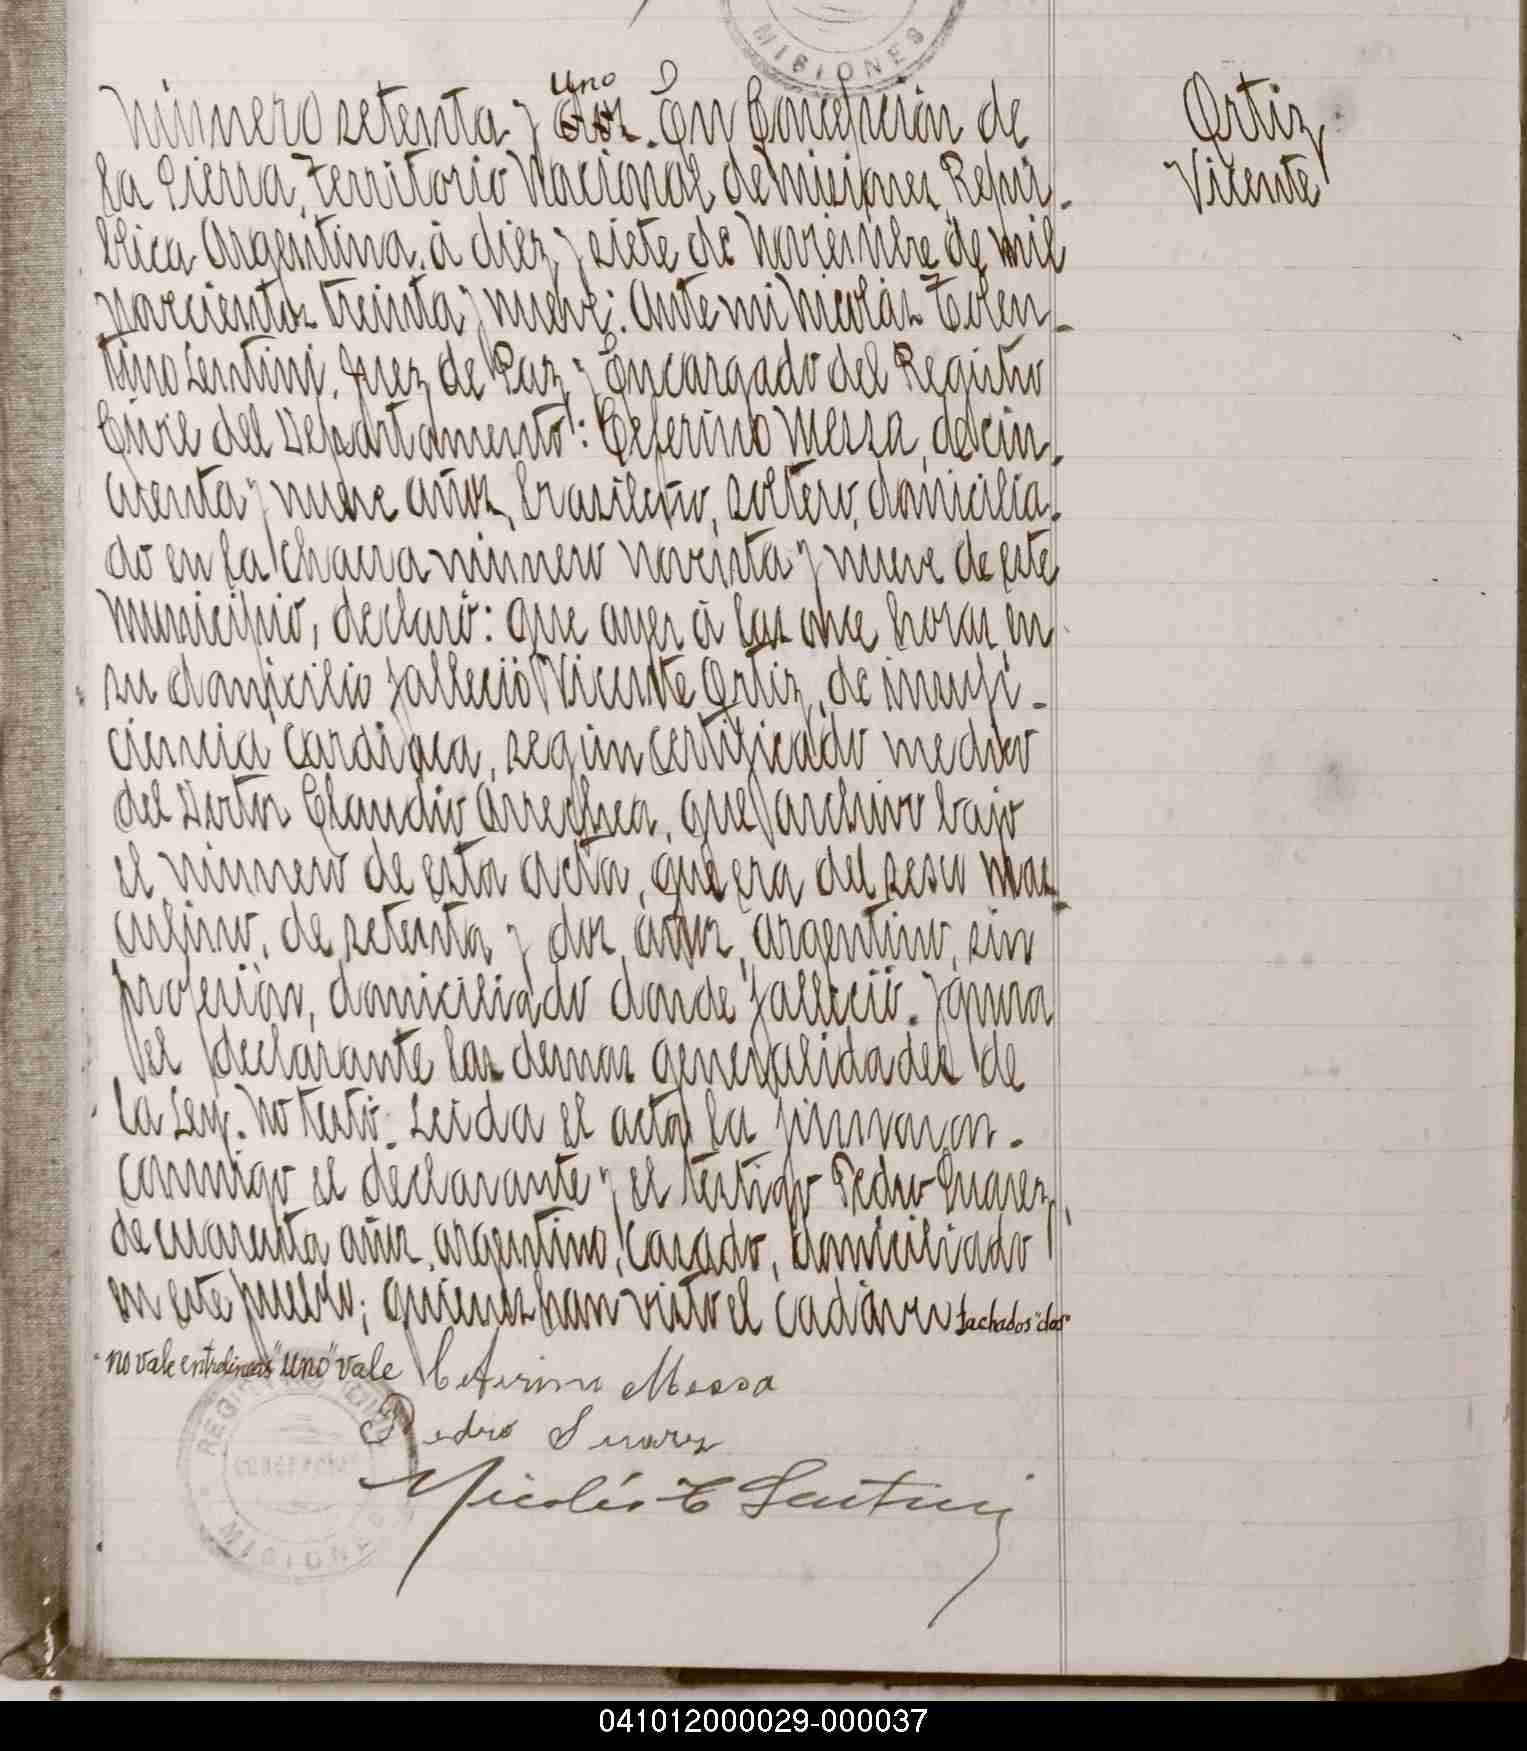 MISIONES
Uno
Número setenta y dos. En Concepción de
la Sierra, Territorio Nacional de Misiones, Repú-
blica Argentina, á diez y siete de Noviembre de mil
novecientos treinta y nueve: Ante mi Nicolás Tolen-
tino Lentini, Juez de Paz y Encargado del Registro
Civil del Departamento: Ceferino Messa, de cin-
cuenta y nueve años, brasileño, soltero, domicilia-
do en la chacra número noventa y nueve de este
municipio, declaró: Que ayer á las once horas en
su domicilio falleció Vicente Ortiz, de insufi-
ciencia cardiaca, según certificado medico
del Doctor Claudio Arrechea, que archivo bajo
el número de esta acta, que era del sexo mas-
culino, de setenta y dos años, argentino, sin
profesión, domiciliado donde falleció. Ignora
el declarante las demas generalidades de
la Ley. No testó. Leída el acta la firmaron
conmigo el declarante y el testigo Pedro Suarez,
de cuarenta años, argentino, casado, domiciliado
en este pueblo; quienes han visto el cadáver tachados "dos"
no vale entrelineas "uno" vale
Ceferino Messa
Pedro Suarez
Nicolás T Lentini
Ortiz
Vicente
REGISTRO CIVIL
CONCEPCION
MISIONES
041012000029-000037